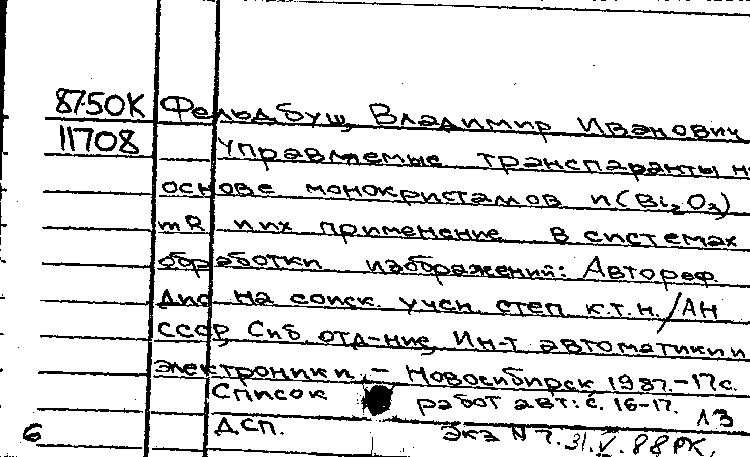 8750К Фельдбуш, Владимир Иванович
11708 Управляемые транспаранты н
основе монокристаллов n(Bi₂O₃)
mR и их применение в системах
обработки изображений: Автореф
дис на соиск. учен. степ к.т.н./АН
СССР, Сиб отд-ние, Ин-т автоматики и
электроники. – Новосибирск, 1987.–17с.
Список работ авт: с. 16-17. 13
6 ДСП. Экз N 7. 31.V.88 РК,